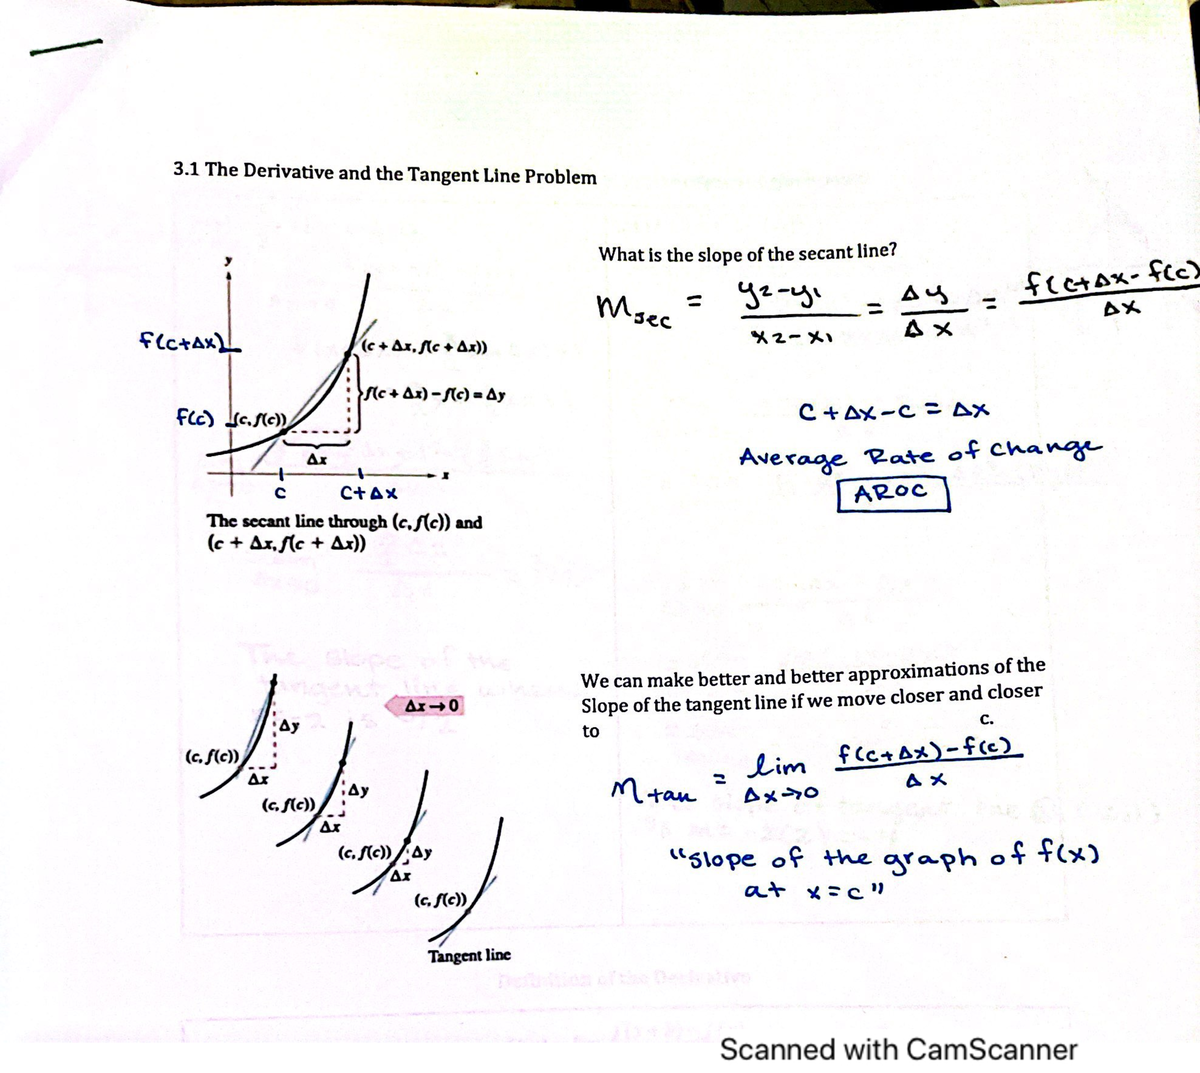 3.1 The Derivative and the Tangent Line Problem
y
f(c+Δx)
(c + Δx, f(c + Δx))
f(c + Δx) − f(c) = Δy
f(c)
(c, f(c))
Δx
x
c
C+Δx
The secant line through (c, f(c)) and
(c + Δx, f(c + Δx))
What is the slope of the secant line?
Msec = y2-y1 / x2-x1 = Δy / Δx = f(c+Δx-f(c) / Δx
C+Δx-c = Δx
Average Rate of change
AROC
Δx→0
Δy
(c, f(c))
Δx
Δy
(c, f(c))
Δx
(c, f(c))
Δy
Δx
(c, f(c))
Tangent line
We can make better and better approximations of the
Slope of the tangent line if we move closer and closer
to
c.
Mtan = lim Δx→0 f(c+Δx)-f(c) / Δx
"slope of the graph of f(x)
at x=c"
The slope of the
tangent line
Definition of the Derivative
Scanned with CamScanner